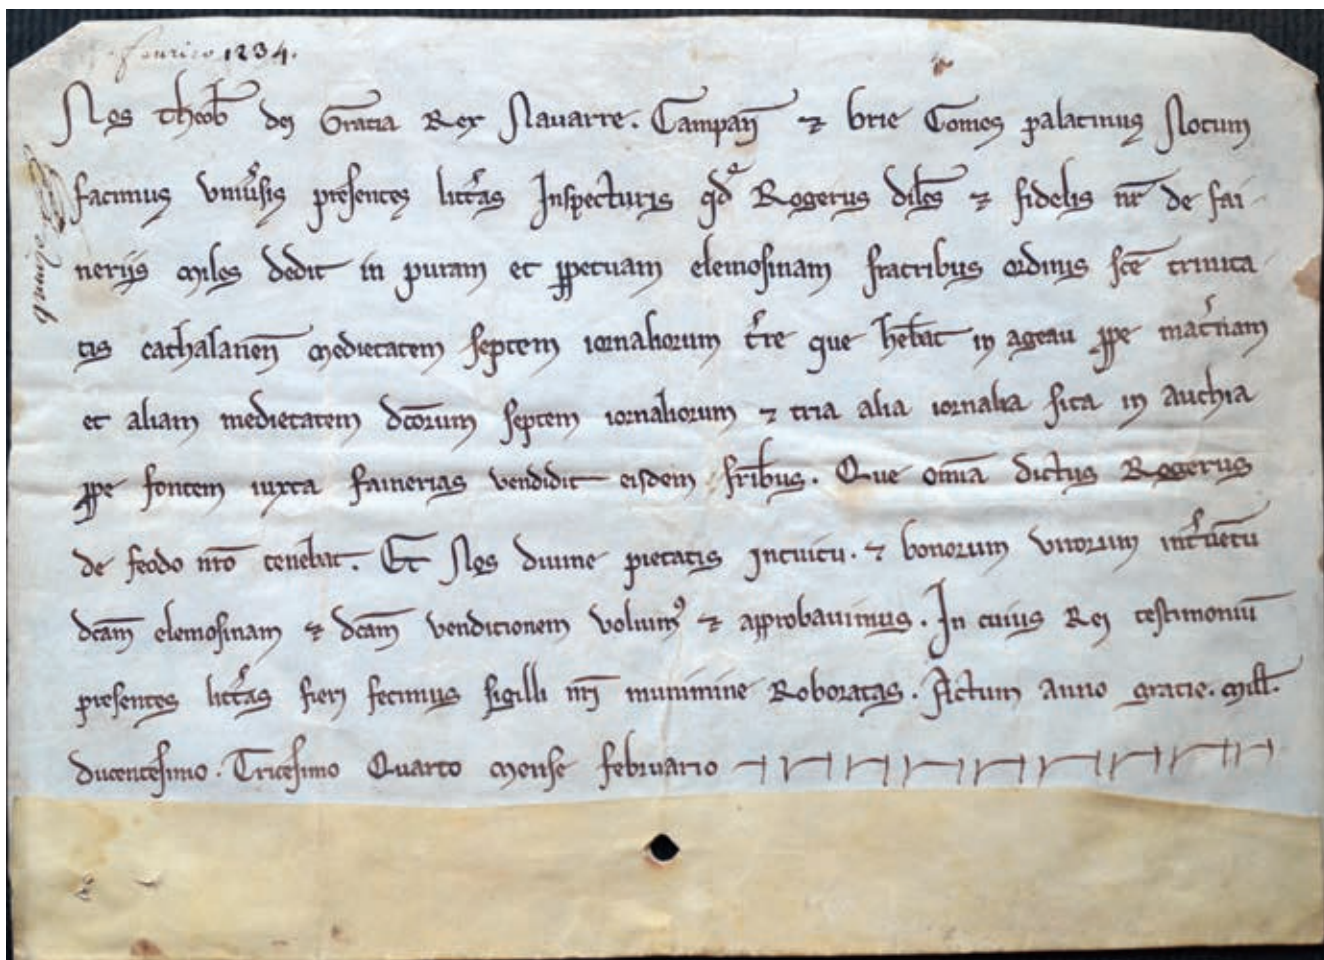 1234.
Nos theob dei Gracia Rex Nauarre. Campan̄ ⁊ brie Comes palatinus Notum
facimus vniu̾sis presentes litt̾as Inspecturis qd Rogerus dil̄cs ⁊ fidelis nr̄ de fai
nerijs miles dedit in puram et ꝑpetuam elemosinam fratribus ordinis sc̄e trinita
tis cathalanen̄ medietatem septem iornaliorum t̾re que heb̄at in ageau ꝓpe mat̾nam
et aliam medietatem dc̄orum septem iornaliorum ⁊ tria alia iornalia sita in auchia
ꝓpe fontem iuxta fainerias vendidit eisdem fr̄ibus. Que om̄ia dictus Rogerus
de feodo nr̄o tenebat. Et Nos diuine pietatis Intuitu. ⁊ bonorum virorum int̾uētu
dc̄am elemosinam ⁊ dc̄am venditionem volumꝰ ⁊ approbauimus. In cuius Rei testimoniū
presentes litt̾as fieri fecimus sigilli nr̄i munimine Roboratas. Actum anno gracie. mill̄.
ducentesimo. Tricesimo Quarto mense februario